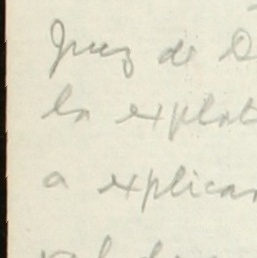 Juez de D
la explot
a explicar